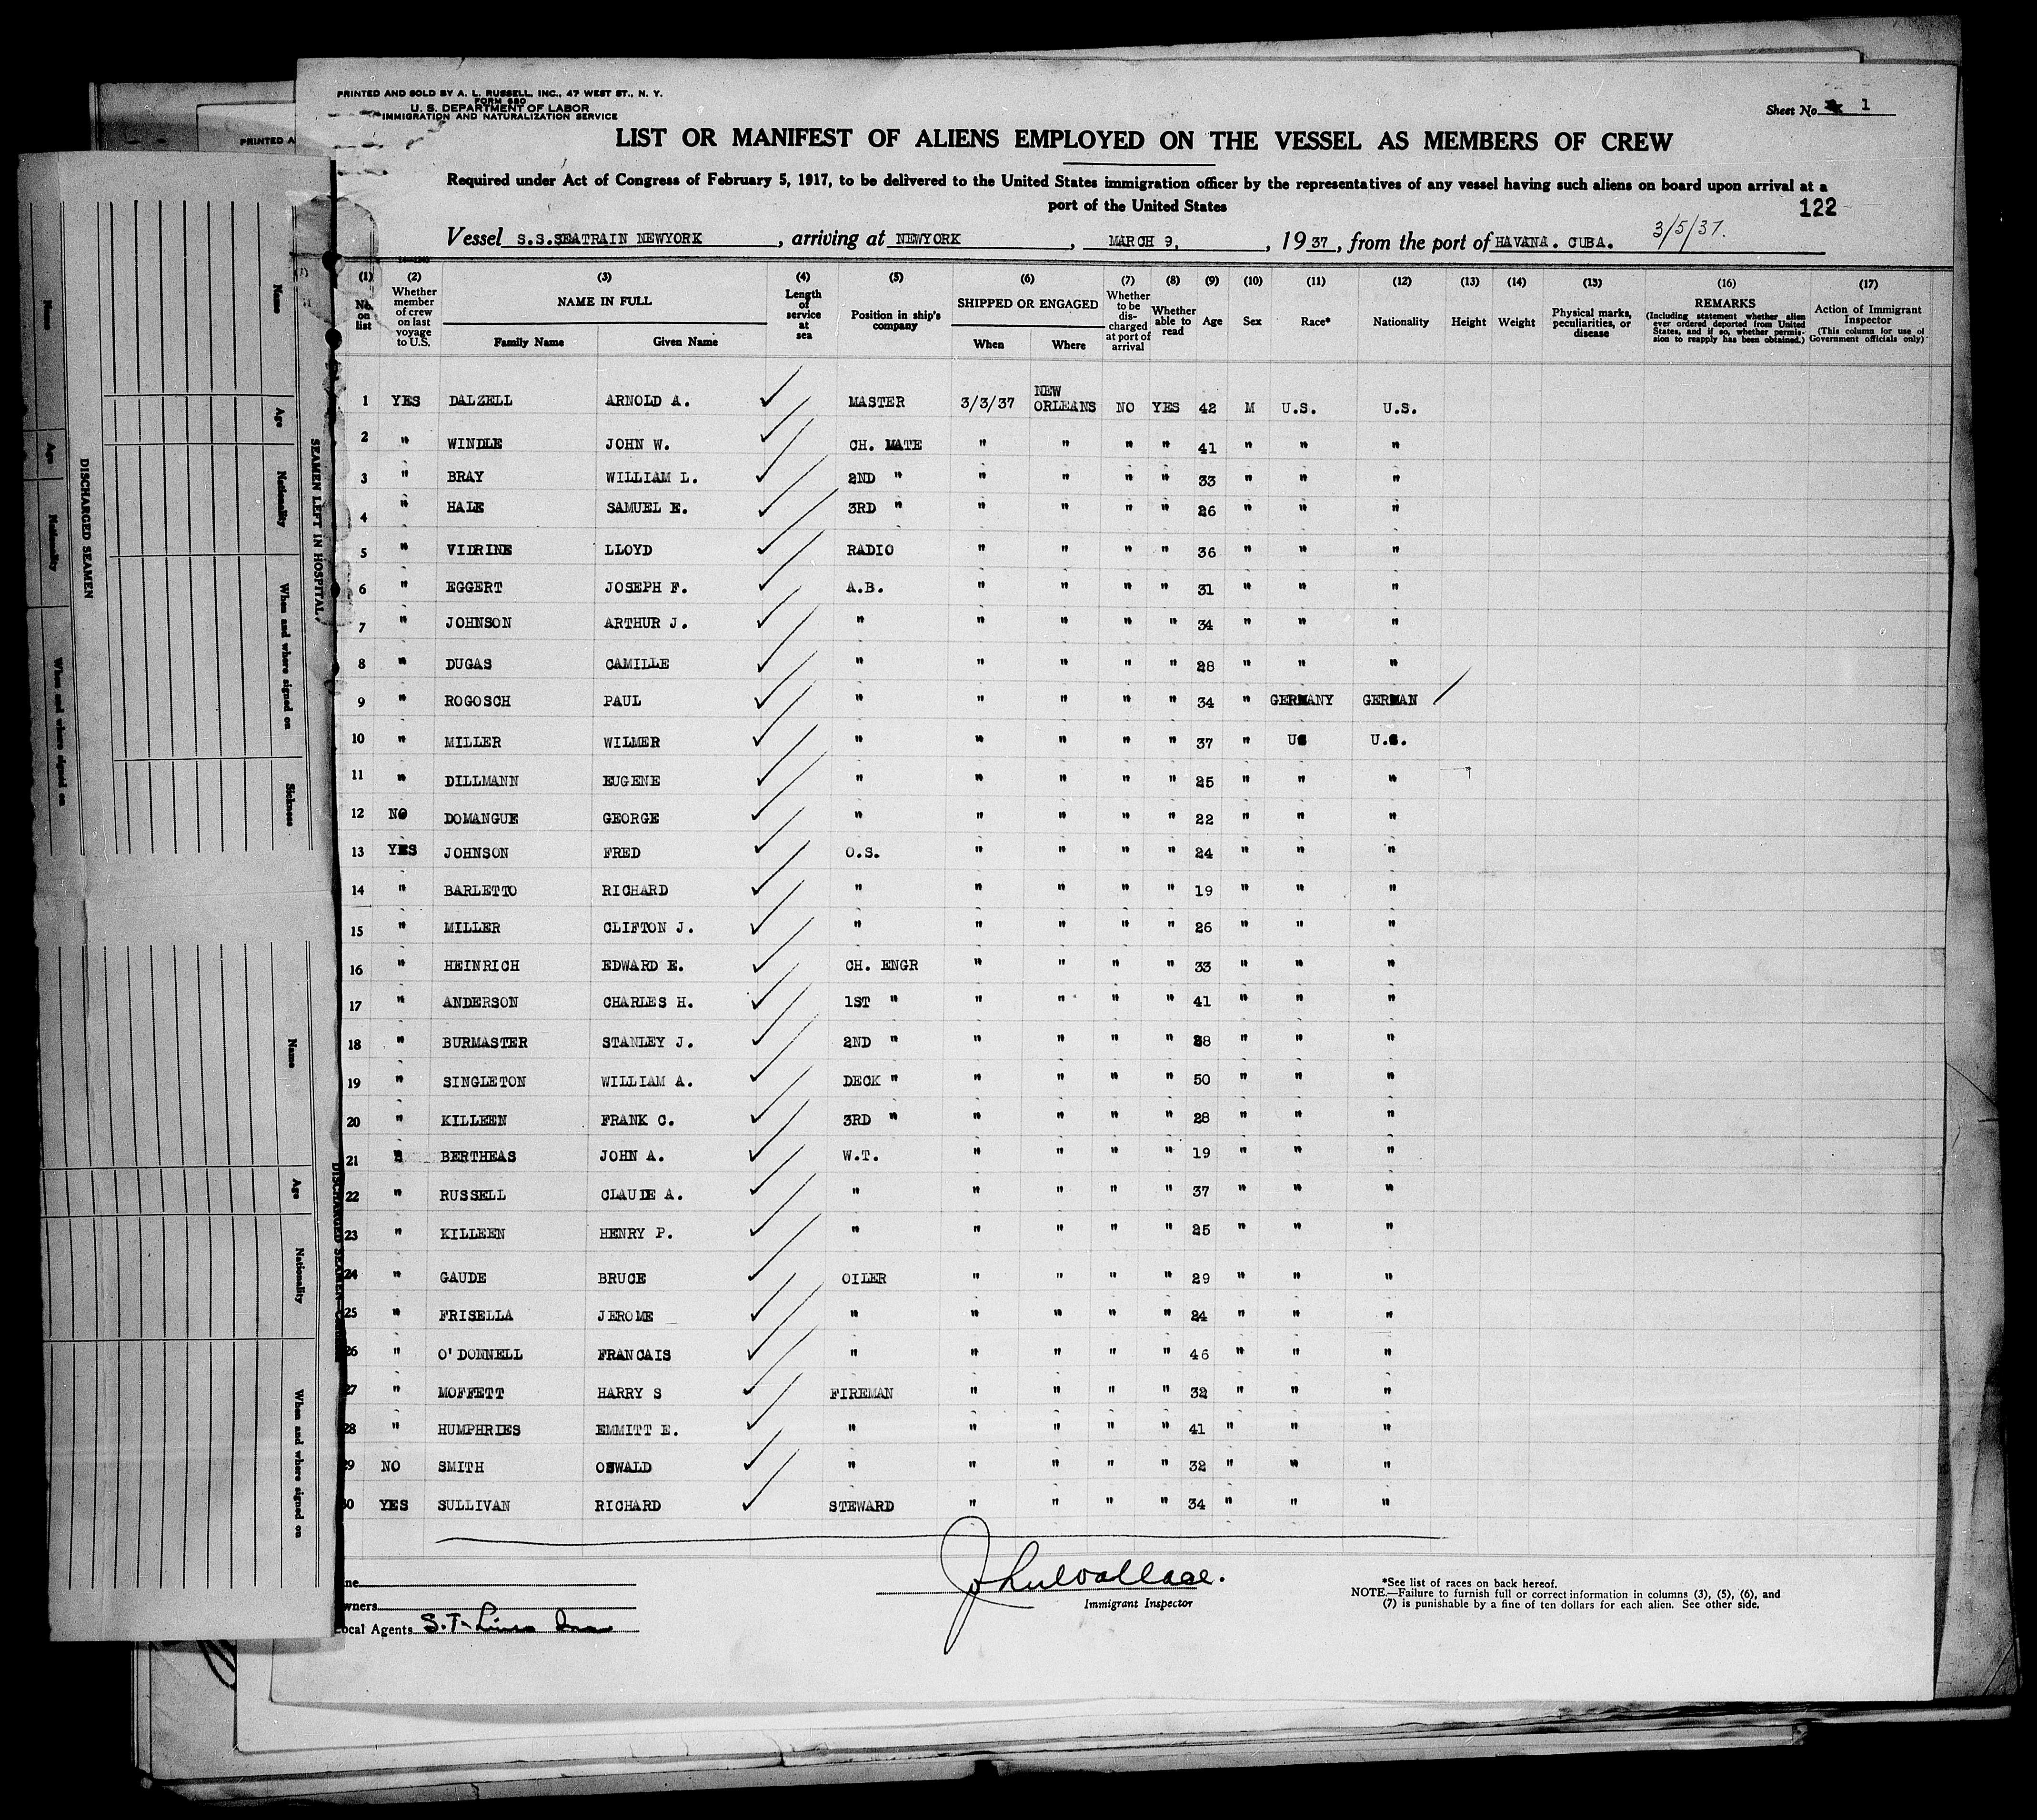 PRINTED AND SOLD BY A. L. RUSSELL, INC., 47 WEST ST., N. Y.
FORM 680
U. S. DEPARTMENT OF LABOR
IMMIGRATION AND NATURALIZATION SERVICE
Sheet No. 1
LIST OR MANIFEST OF ALIENS EMPLOYED ON THE VESSEL AS MEMBERS OF CREW
Required under Act of Congress of February 5, 1917, to be delivered to the United States immigration officer by the representatives of any vessel having such aliens on board upon arrival at a
port of the United States
122
Vessel S.S.SEATRAIN NEWYORK, arriving at NEWYORK, MARCH 9, 1937, from the port of HAVANA. CUBA. 3/5/37.
(1) (2) (3) (4) (5) (6) (7) (8) (9) (10) (11) (12) (13) (14) (13) (16) (17)
No. on list
Whether member of crew on last voyage to U.S.
NAME IN FULL
Family Name Given Name
Length of service at sea
Position in ship's company
SHIPPED OR ENGAGED
When Where
Whether to be discharged at port of arrival
Whether able to read
Age
Sex
Race*
Nationality
Height
Weight
Physical marks, peculiarities, or disease
REMARKS
(Including statement whether alien ever ordered deported from United States, and if so, whether permission to reapply has been obtained.)
Action of Immigrant Inspector
(This column for use of Government officials only)
1 YES DALZELL ARNOLD A. ✓ MASTER 3/3/37 NEW ORLEANS NO YES 42 M U.S. U.S.
2 " WINDLE JOHN W. ✓ CH. MATE " " " " 41 " " "
3 " BRAY WILLIAM L. ✓ 2ND " " " " " 33 " " "
4 " HALE SAMUEL E. ✓ 3RD " " " " " 26 " " "
5 " VIDRINE LLOYD ✓ RADIO " " " " 36 " " "
6 " EGGERT JOSEPH F. ✓ A.B. " " " " 31 " " "
7 " JOHNSON ARTHUR J. ✓ " " " " " 34 " " "
8 " DUGAS CAMILLE ✓ " " " " " 28 " " "
9 " ROGOSCH PAUL ✓ " " " " " 34 " GERMANY GERMAN /
10 " MILLER WILMER ✓ " " " " " 37 " US U.S.
11 " DILLMANN EUGENE ✓ " " " " " 25 " " "
12 NO DOMANGUE GEORGE ✓ " " " " " 22 " " "
13 YES JOHNSON FRED ✓ O.S. " " " " 24 " " "
14 " BARLETTO RICHARD ✓ " " " " " 19 " " "
15 " MILLER CLIFTON J. ✓ " " " " " 26 " " "
16 " HEINRICH EDWARD E. ✓ CH. ENGR " " " " 33 " " "
17 " ANDERSON CHARLES H. ✓ 1ST " " " " " 41 " " "
18 " BURMASTER STANLEY J. ✓ 2ND " " " " " " " "
19 " SINGLETON WILLIAM A. ✓ DECK " " " " " 50 " " "
20 " KILLEEN FRANK C. ✓ 3RD " " " " " 28 " " "
21 " BERTHEAS JOHN A. ✓ W.T. " " " " 19 " " "
22 " RUSSELL CLAUDE A. ✓ " " " " " 37 " " "
23 " KILLEEN HENRY P. ✓ " " " " " 25 " " "
24 " GAUDE BRUCE ✓ OILER " " " " 29 " " "
25 " FRISELLA JEROME ✓ " " " " " 24 " " "
26 " O'DONNELL FRANCAIS ✓ " " " " " 46 " " "
27 " MOFFETT HARRY S ✓ FIREMAN " " " " 32 " " "
28 " HUMPHRIES EMMITT E. ✓ " " " " " 41 " " "
29 NO SMITH OSWALD ✓ " " " " " 32 " " "
30 YES SULLIVAN RICHARD ✓ STEWARD " " " " 34 " " "
Immigrant Inspector
*See list of races on back hereof.
NOTE.—Failure to furnish full or correct information in columns (3), (5), (6), and
(7) is punishable by a fine of ten dollars for each alien. See other side.
Local Agents S.T. Lines Inc
PRINTED A
SEAMEN LEFT IN HOSPITAL
Name Age Nationality When and where signed on Sickness
DISCHARGED SEAMEN
Name Age Nationality When and where signed on
DISCHARGED SEAMEN
Name Age Nationality When and where signed on